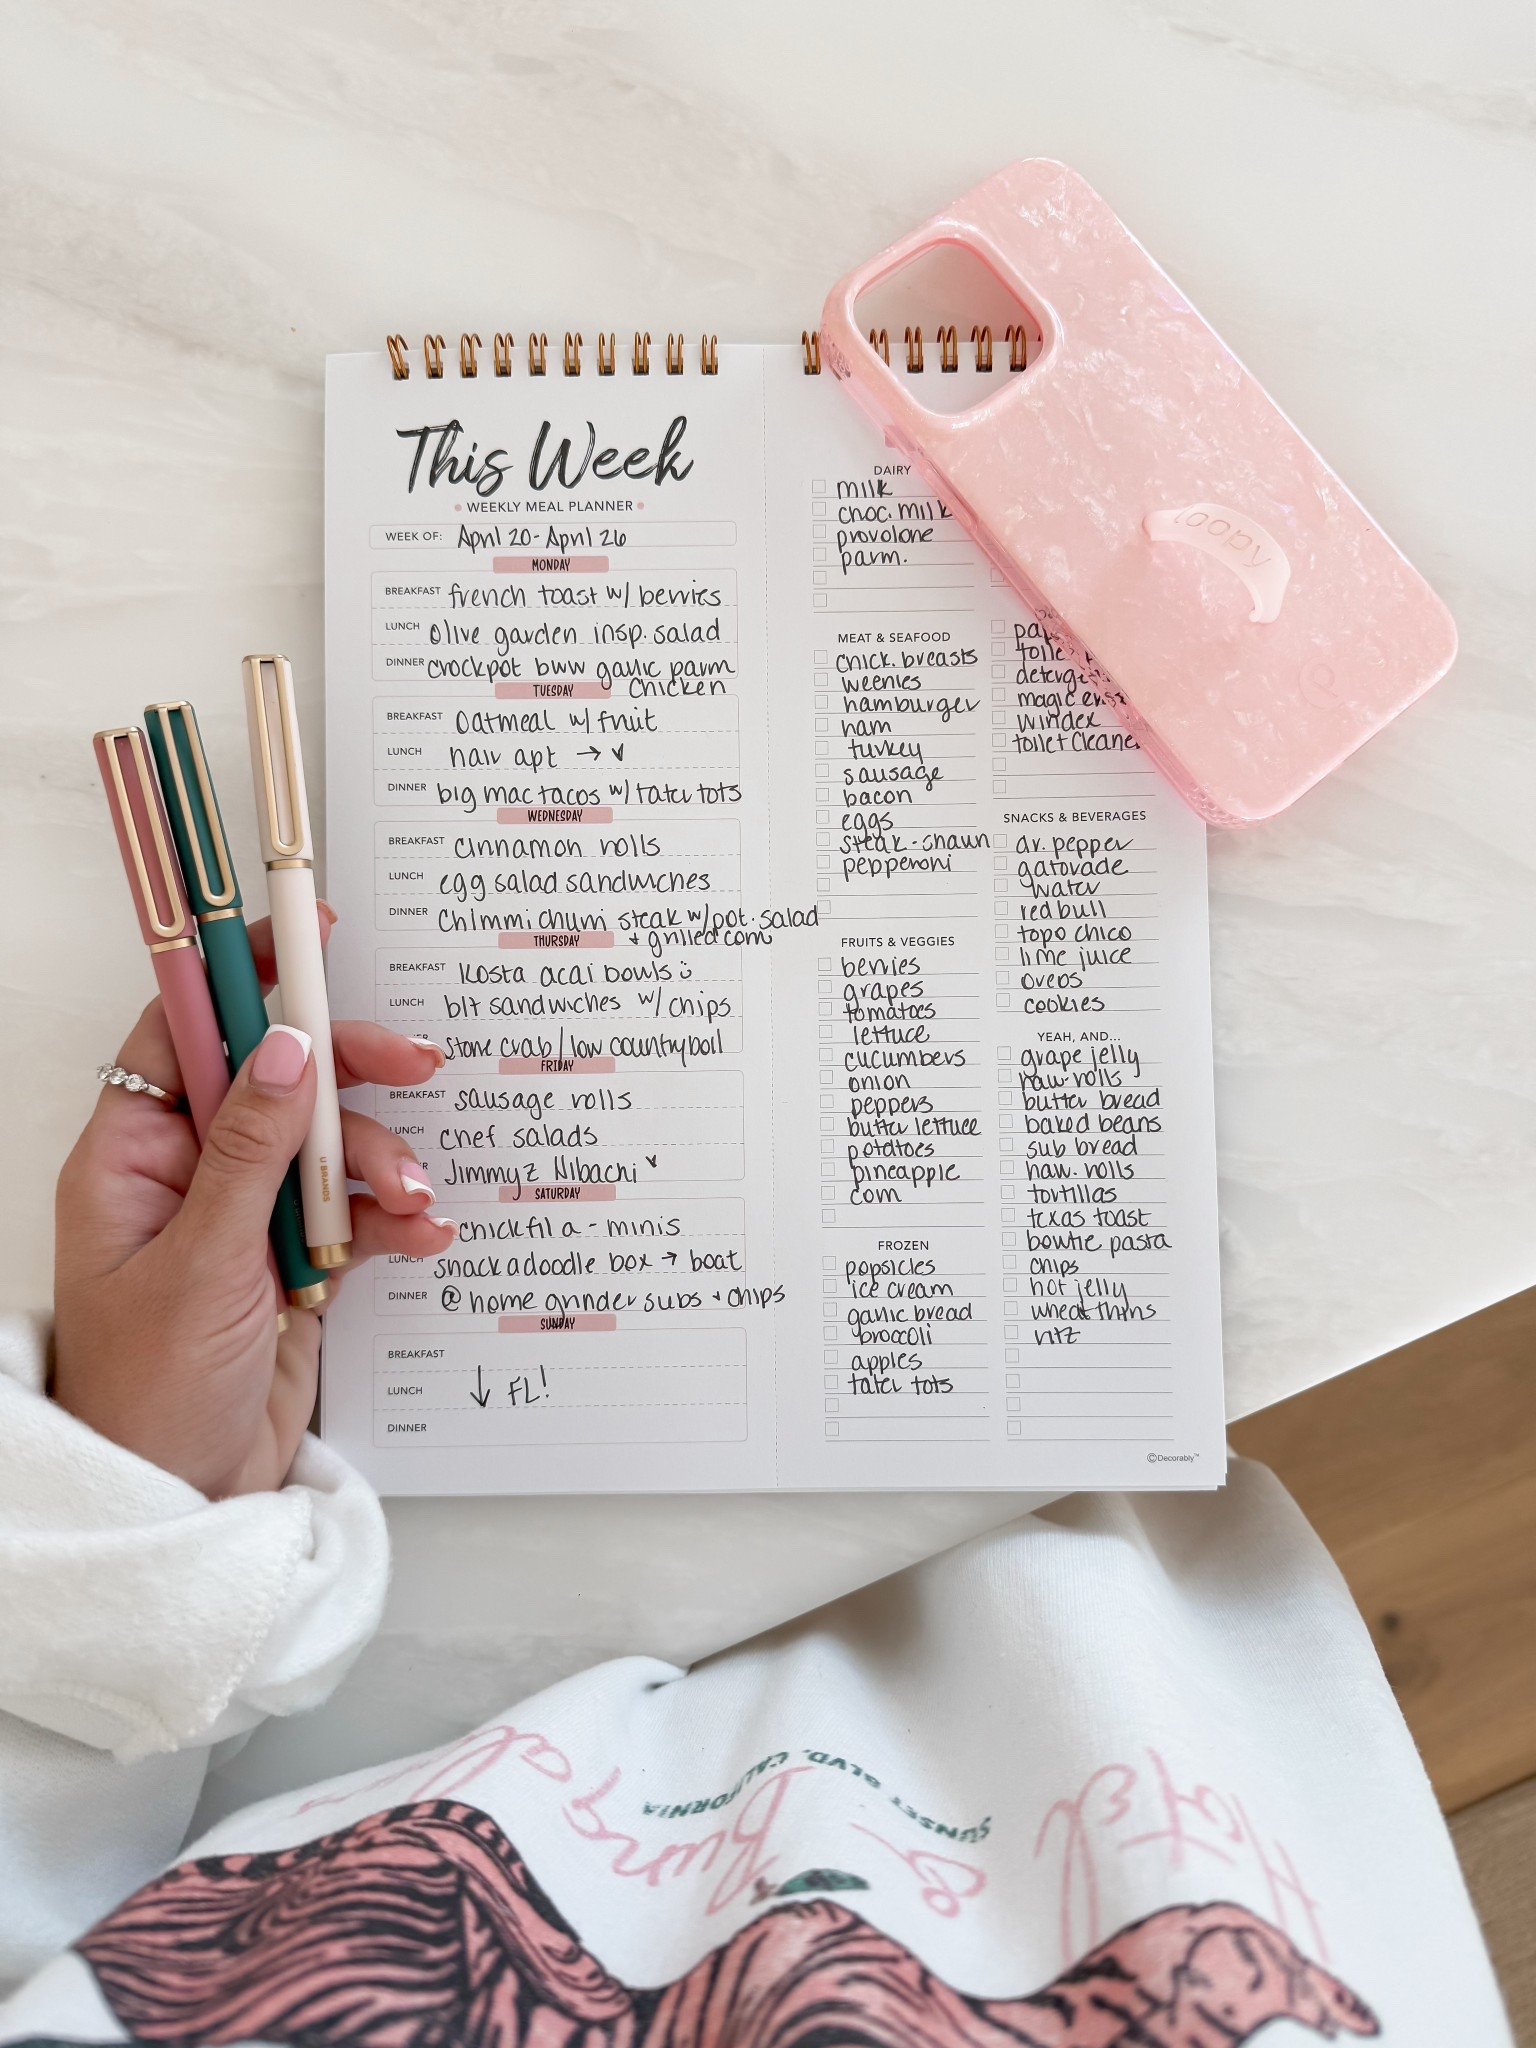 This Week
WEEKLY MEAL PLANNER
WEEK OF: April 20 - April 26
MONDAY
BREAKFAST french toast w/ berries
LUNCH Olive garden insp. salad
DINNER crockpot bww garlic parm
chicken
TUESDAY
BREAKFAST Oatmeal w/ fruit
LUNCH hair apt →
DINNER big mac tacos w/ tater tots
WEDNESDAY
BREAKFAST cinnamon rolls
LUNCH egg salad sandwiches
DINNER Chimmichurri steak w/ pot. salad
+ grilled corn
THURSDAY
BREAKFAST Kosta acai bowls
LUNCH blt sandwiches w/ chips
Stone crab / low country boil
FRIDAY
BREAKFAST sausage rolls
LUNCH chef salads
Jimmyz Hibachi
SATURDAY
chickfil a - minis
LUNCH snackadoodle box → boat
DINNER @ home grinder subs + chips
SUNDAY
BREAKFAST
LUNCH ↓ FL!
DINNER
DAIRY
milk
choc. milk
provolone
parm.
MEAT & SEAFOOD
chick. breasts
weenies
hamburger
ham
turkey
sausage
bacon
eggs
steak - shaun
pepperoni
FRUITS & VEGGIES
berries
grapes
tomatoes
lettuce
cucumbers
onion
peppers
butter lettuce
potatoes
pineapple
corn
FROZEN
popsicles
ice cream
garlic bread
broccoli
apples
tater tots
magic
windex
toilet cleaner
SNACKS & BEVERAGES
dr. pepper
gatorade
water
redbull
topo chico
lime juice
oreos
cookies
YEAH, AND...
grape jelly
haw. rolls
butter bread
baked beans
sub bread
haw. rolls
tortillas
texas toast
bowtie pasta
chips
hot jelly
wheat thins
ritz
©Decorably™
loopy
U BRANDS
SUNSET BLVD. CALIFORNIA